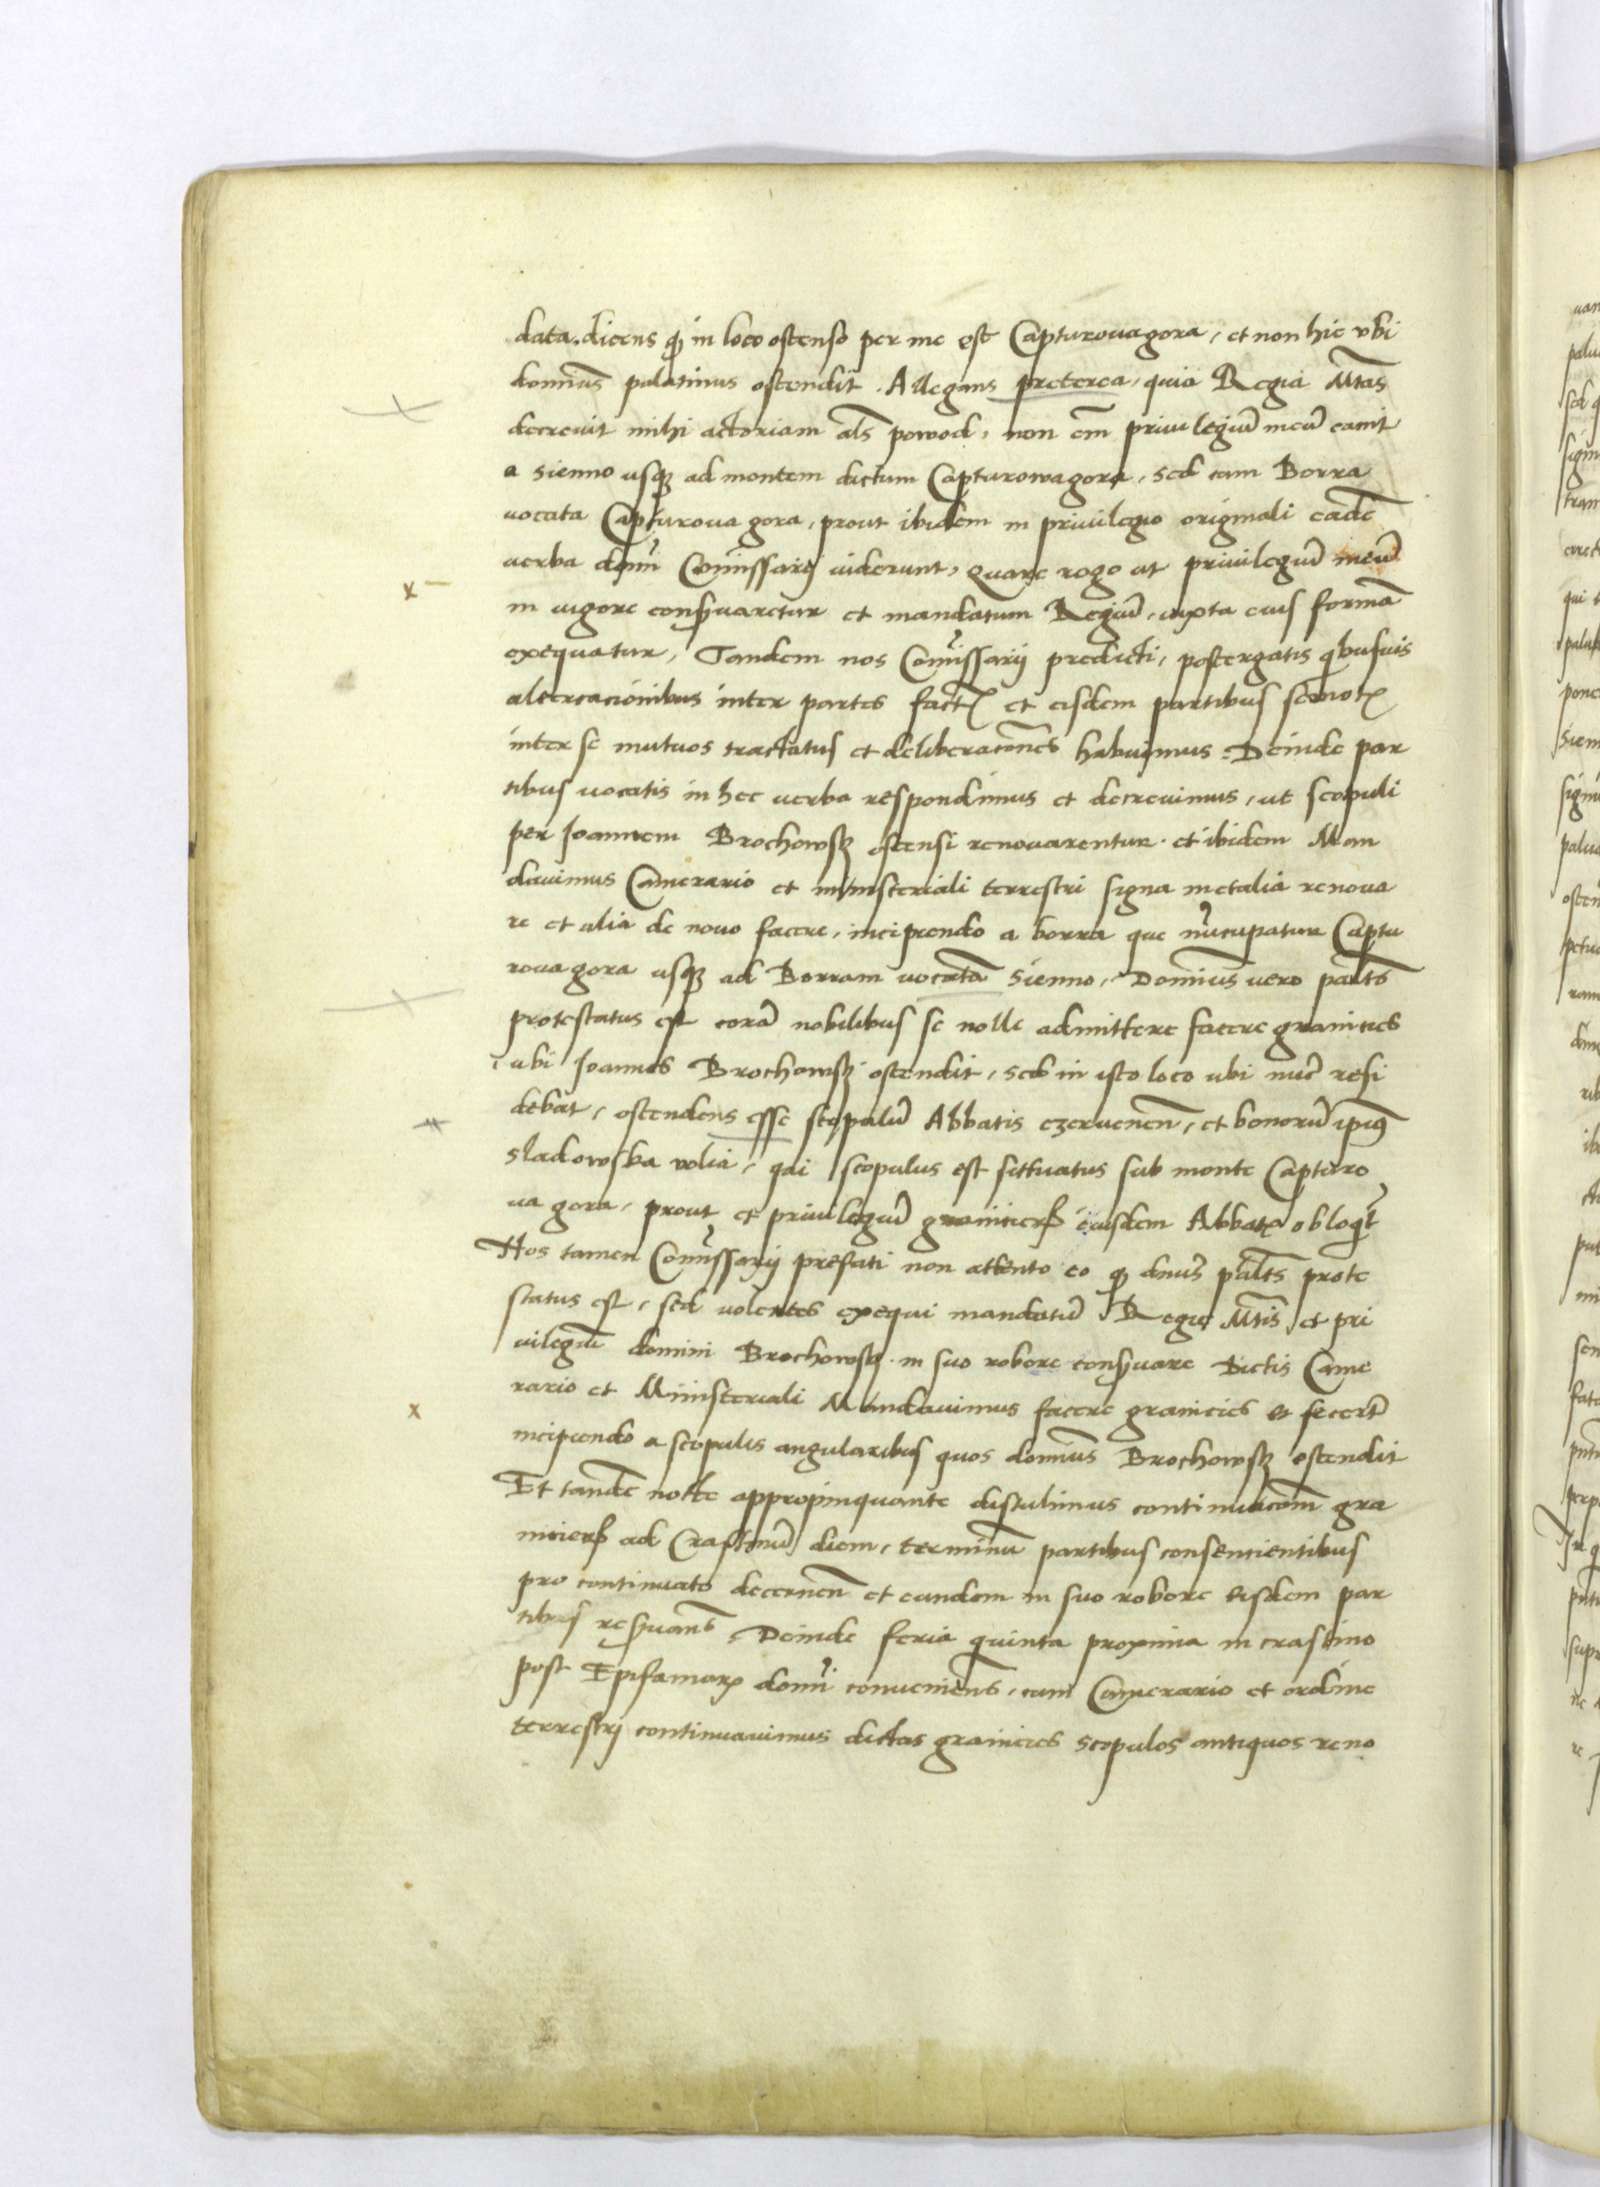 data. dicens qz in loco ostenso per me est Capturouagora, et non hic vbi
dominus palatinus ostendit. Allegans preterea, quia Regia Mtas
decreuit mihi actoriam als powod, non em̄ priuilegiū meū canit
a Sienno usqz ad montem dictum Capturowagora, sed cum Borra
uocata Capturoua gora, prout ibidem in priuilegio originali eadē
uerba domi Comissarij uiderunt, Quare rogo ut priuilegiū meū
in uigore conseruaretur et mandatum Regiū, iuxta eius formā
exequatur, Tandem nos Comissarij predicti, postergatis qbusuis
altercacionibus inter partes fact et eisdem partibus semot
inter se mutuos tractatus et deliberacōnes habuimus. Deinde par
tibus uocatis in hec uerba respondimus et decreuimus, ut scopuli
per Joannem Brochowsz ostensi renouarentur. et ibidem Man
dauimus Camerario et ministeriali terrestri signa metalia renoua
re et alia de nouo facere, incipiendo a borra que nūcupatur Captu
roua gora usqz ad Borram uocatā Sienno, Dominus uero palts
protestatus est corā nobilibus se nolle admittere facere granicies
ubi Joannes Brochowsz ostendit, sed in isto loco ubi nūc resi
debat, ostendens esse scopulū Abbatis czeruenen̄, et bonorū ipius
sladowska volia, qui scopulus est sittuatus sub monte Capturo
ua gora, prout et priuilegiū granicierꝝ eiusdem Abbat obloqt
Nos tamen Comissarij prefati non attento eo qz dnus palts prote
status est, sed uolentes exequi mandatū Regie Mtis et pri
uilegiū domini Brochowsz in suo robore conseruare Dictis Came
rario et Ministeriali Mandauimus facere granicies et fecerūt
incipiendo a scopulis angularibus quos dominus Brochowsz ostendit
Et tandē nocte appropinquante distulimus continuacōnem gra
nicierꝝ ad Crastinū diem, terminū partibus consencientibus
pro continuato decernen̄ et eundem in suo robore eisdem par
tibus reseruans, Deinde feria quinta proxima in crastino
post Epifaniarꝝ domi conueniens, cum Camerario et ordine
terrestrj continuauimus dictas granicies scopulos antiquos reno